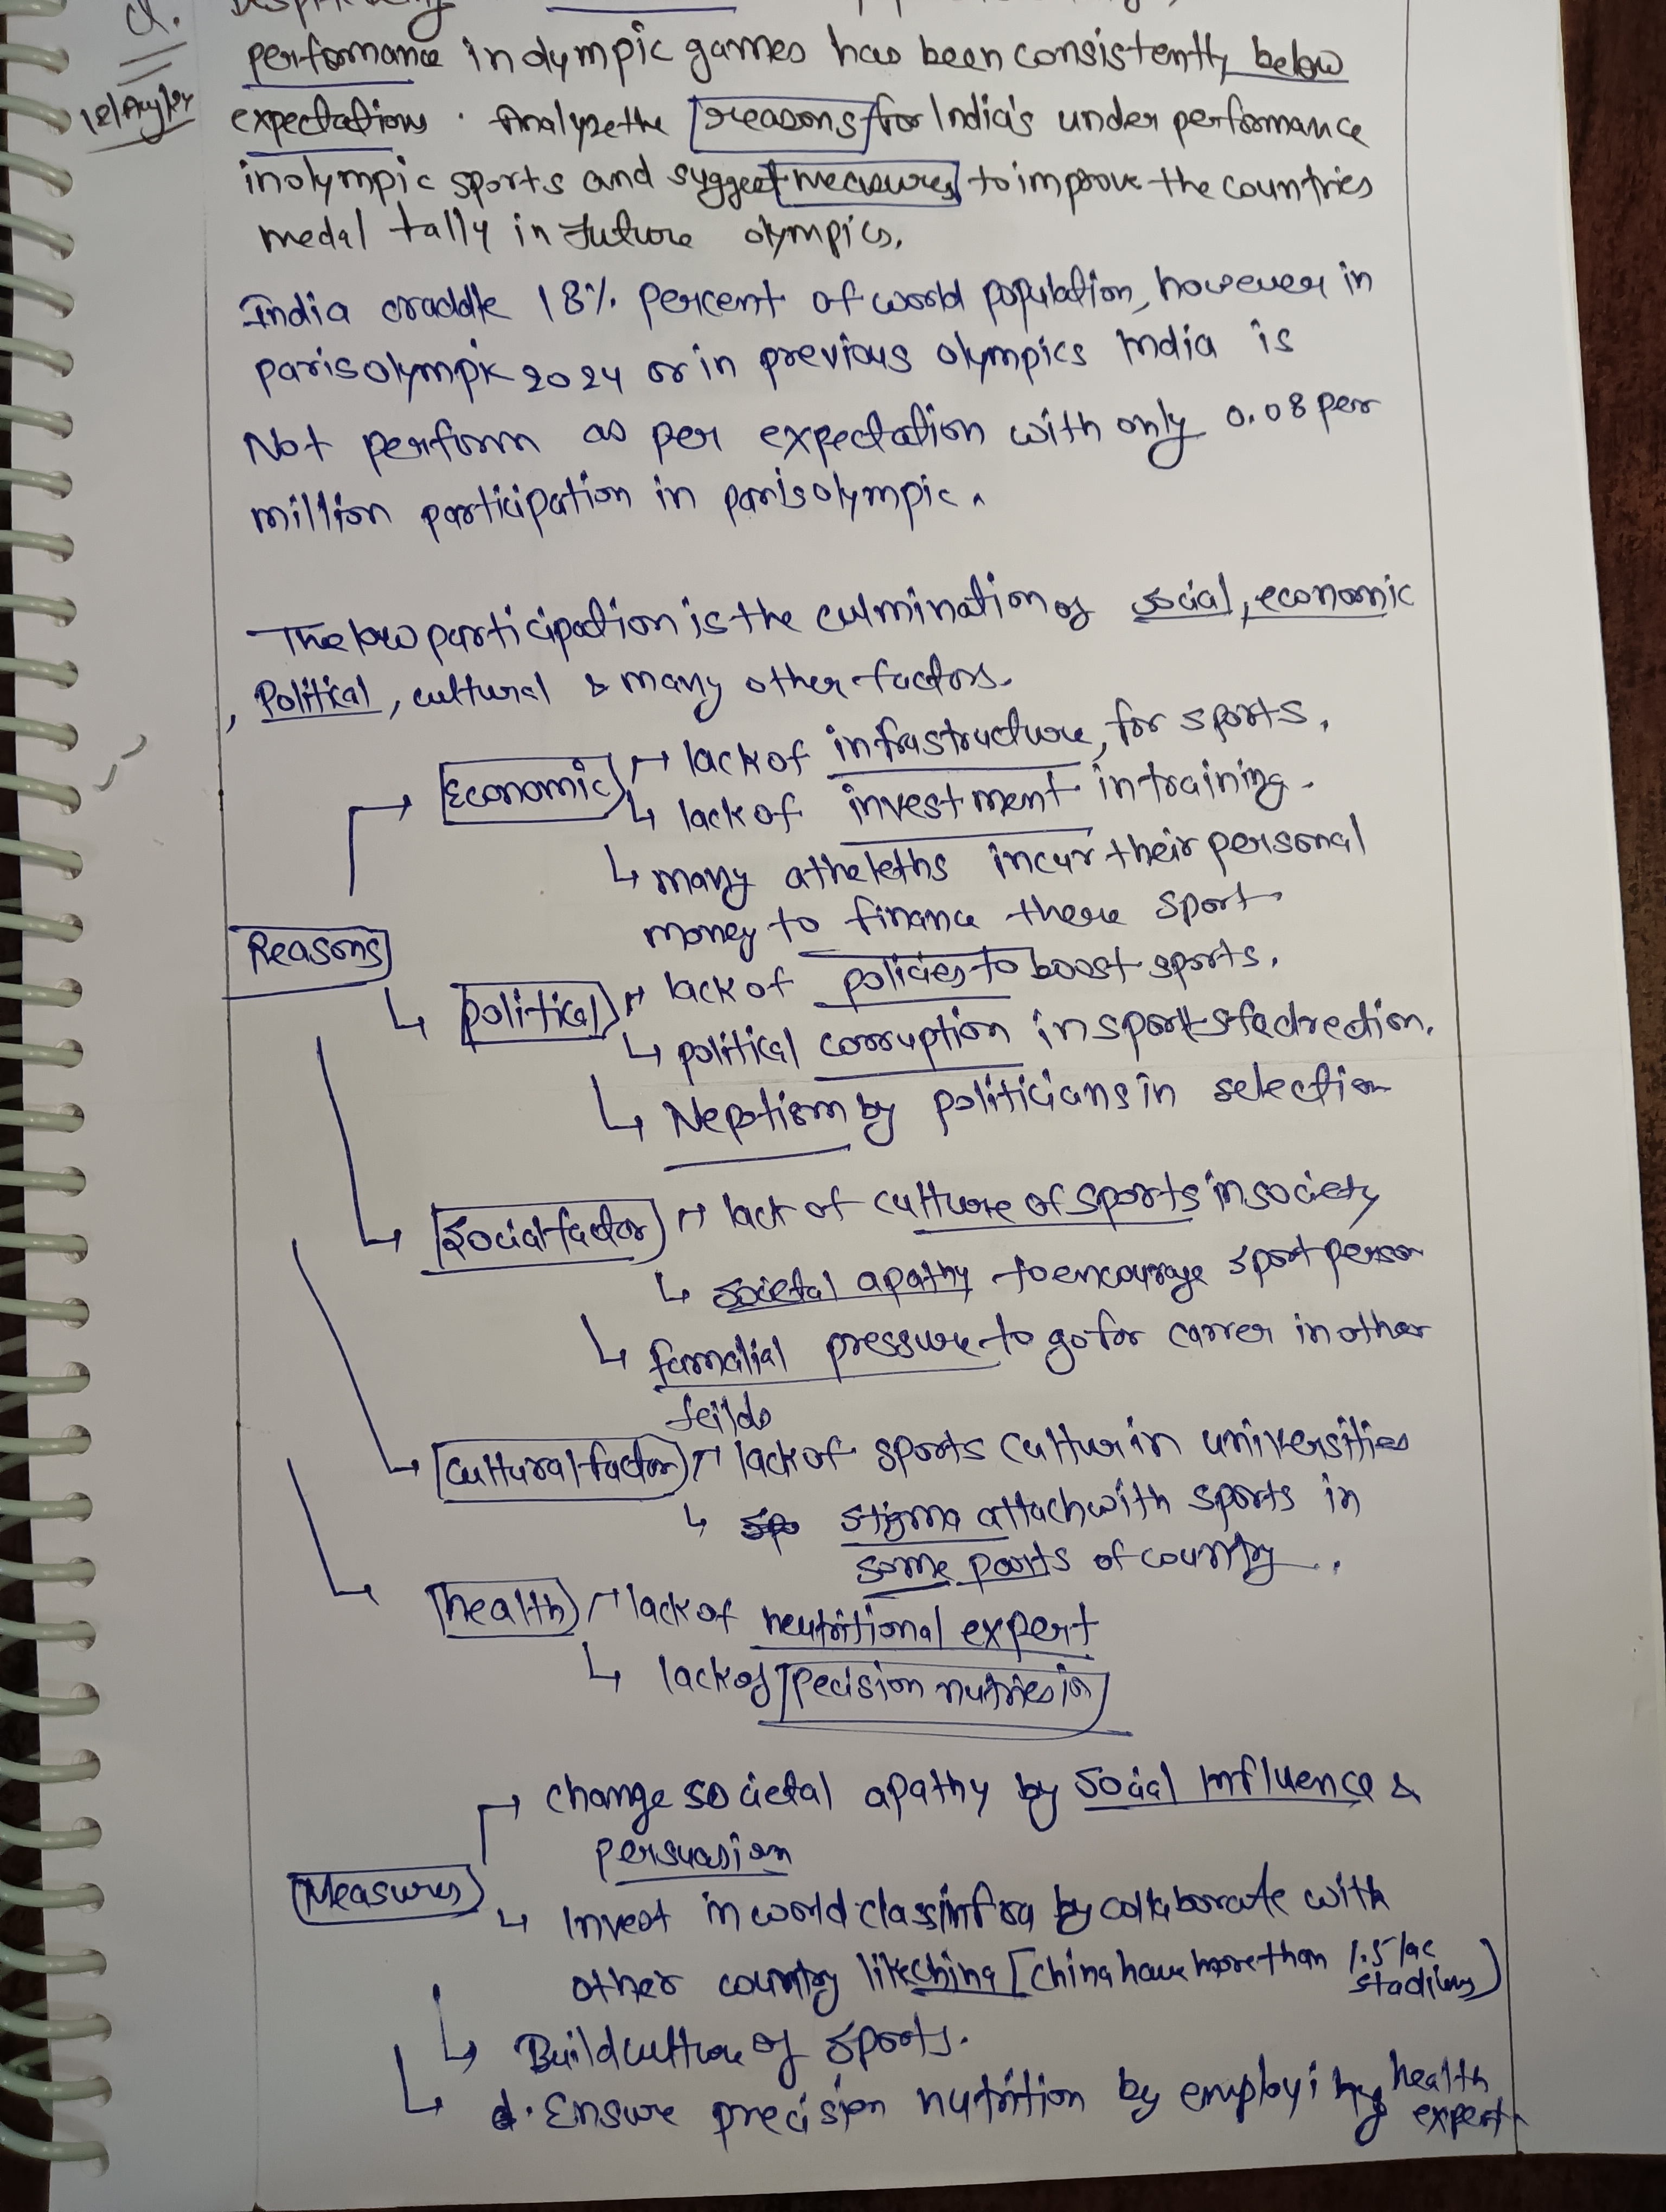 Q.
performance in olympic games has been consistently below
12/Aug/24
expectations. Analyze the reasons for India's under performance
in olympic sports and suggest measures to improve the countries
medal tally in future olympics.
India craddle 18% percent of world population, however in
paris olympic 2024 or in previous olympics India is
Not perform as per expectation with only 0.08 per
million participation in paris olympic.
The low participation is the culmination of social, economic
, Political, cultural & many other factors.
Economic → lack of infrastructure, for sports.
↳ lack of investment in training.
↳ many atheleths incur their personal
money to finance there sport
Reasons
political → lack of policies to boost sports.
↳ political corruption in sports fedrection.
↳ Nepotism by politicians in selection
Social factor → lack of culture of sports in society
↳ societal apathy to encourage sport person
↳ familial pressure to go for carrer in other
feilds
cultural factor → lack of sports cultur in universities
↳ stigma attach with sports in
some parts of country.
health → lack of neutritional expert
↳ lack of pecision nutriesion
→ change societal apathy by social influence &
persuasion
Measures
↳ Invest in world class infra by collaborate with
other country like china [china have more than 1.5 lac
stadiums]
↳ Build culture of sports.
↳ d. Ensure precision nutrition by employing health
expert